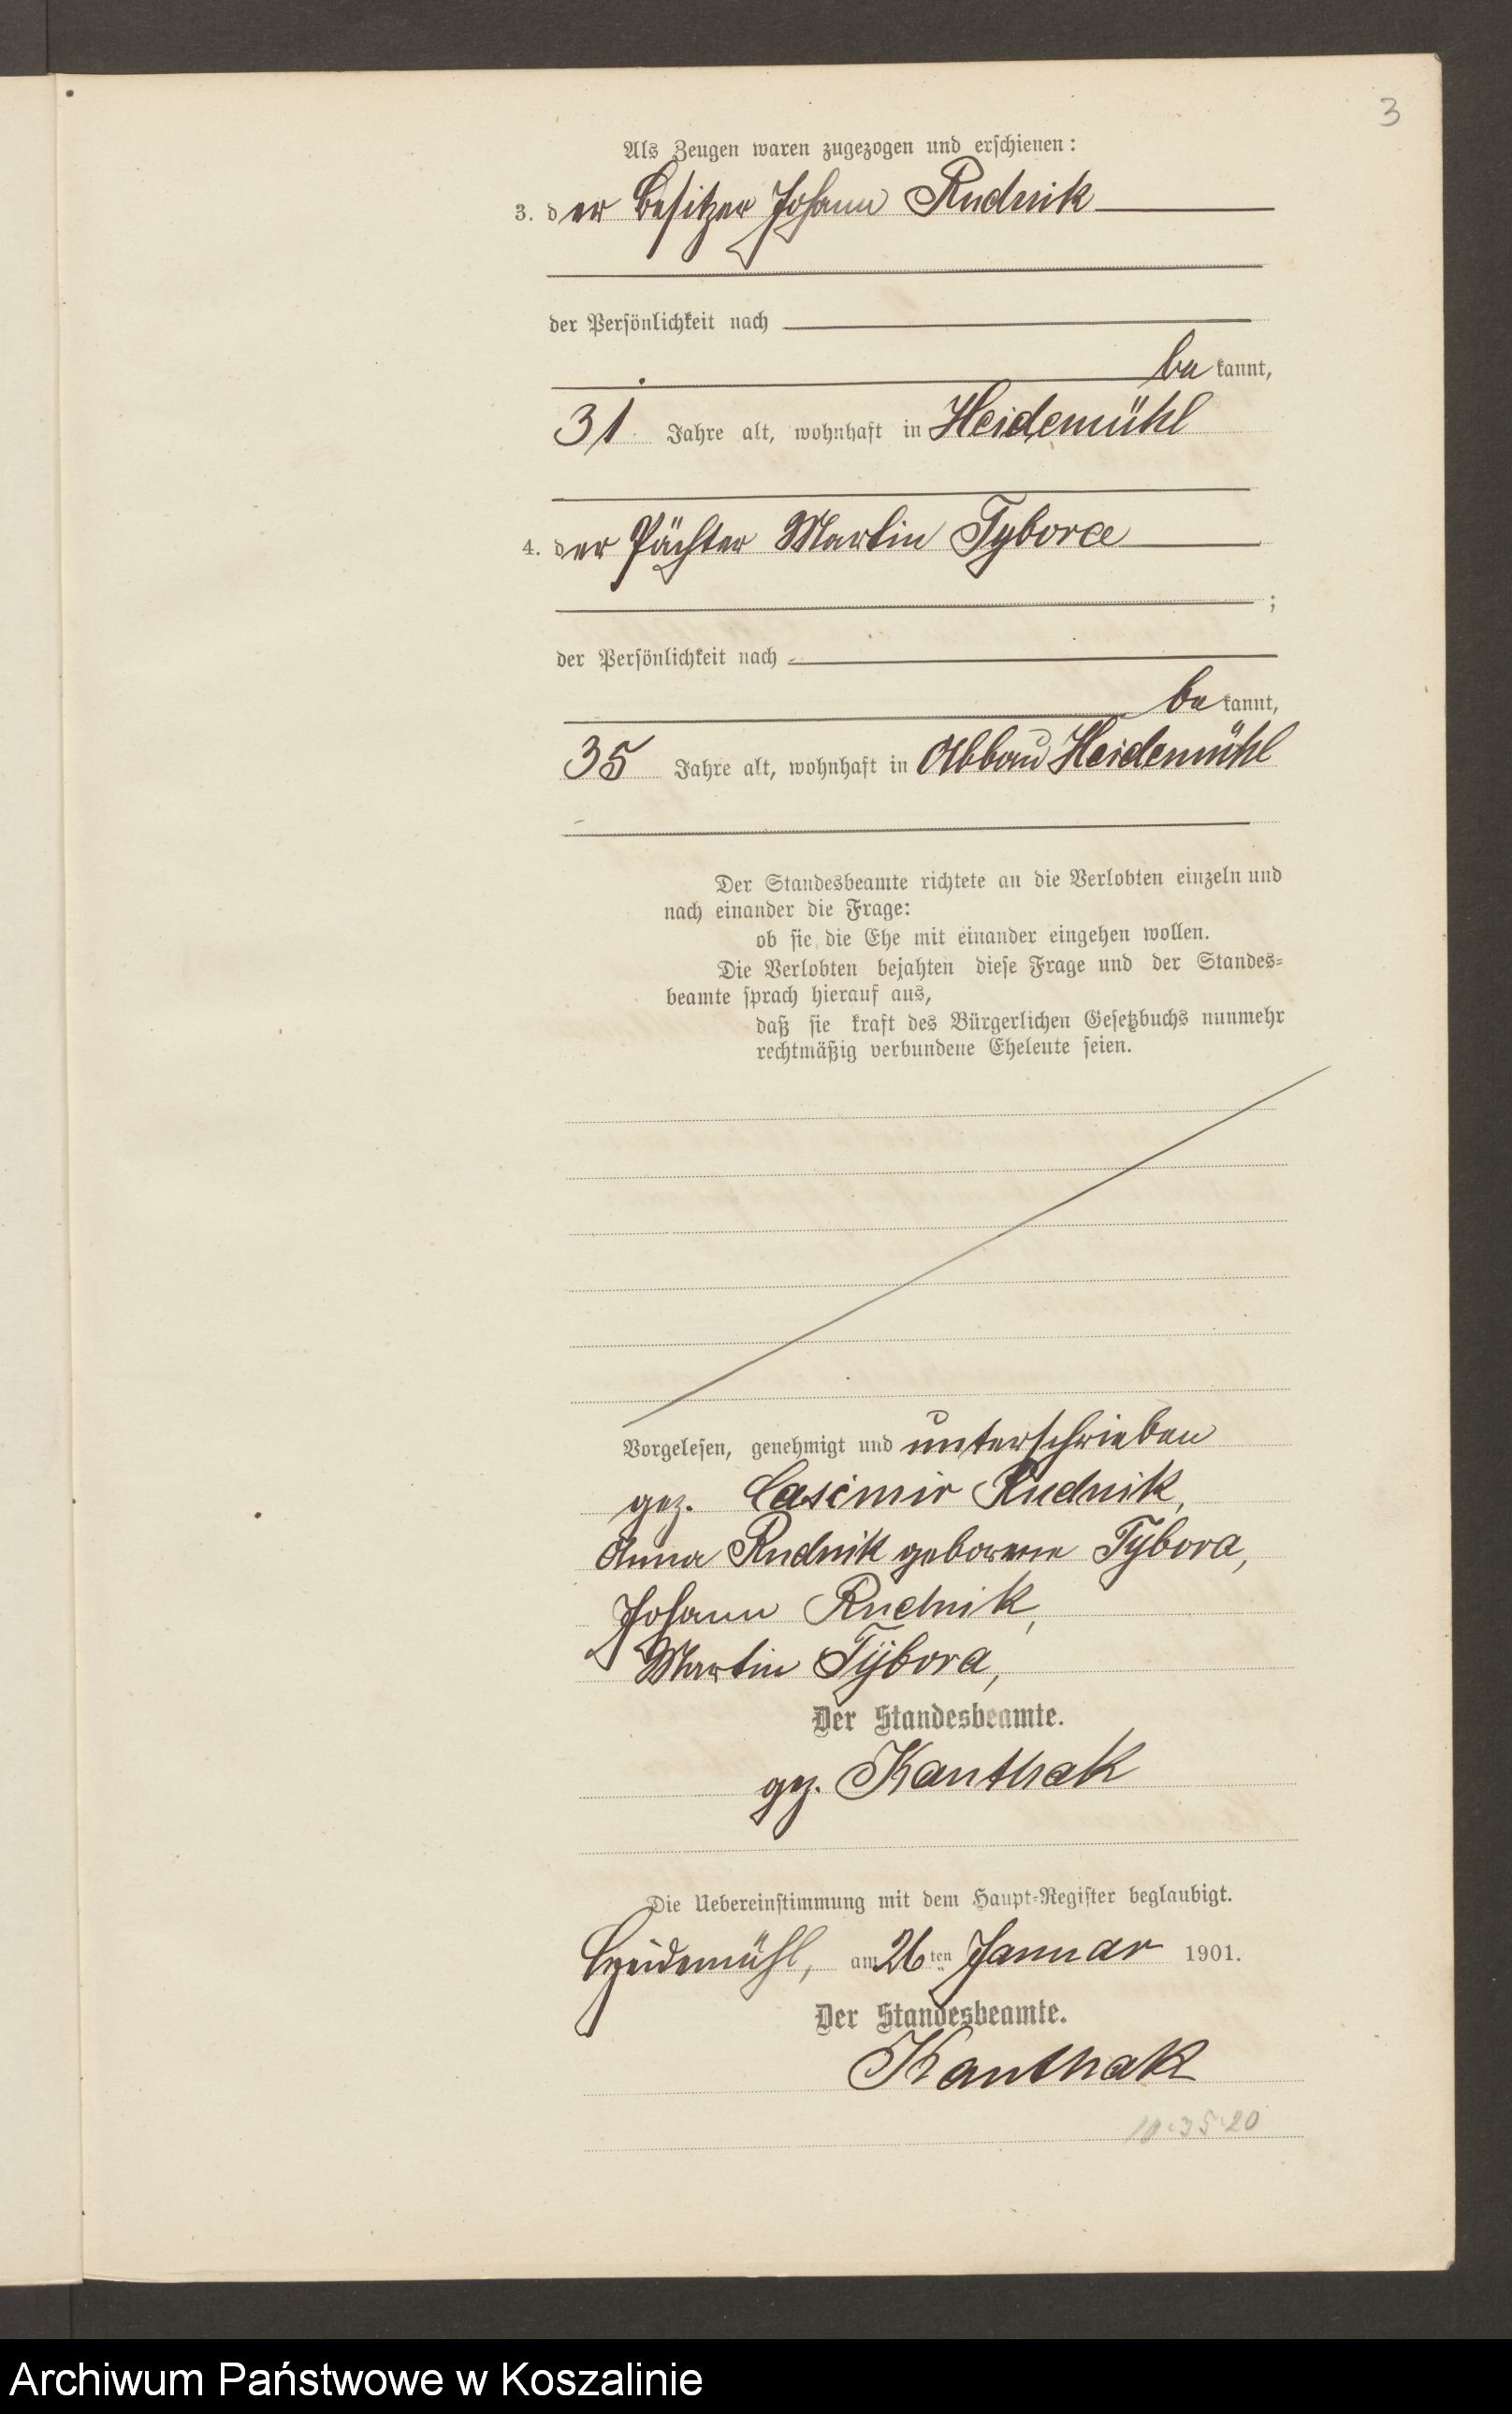 3
Als Zeugen waren zugezogen und erschienen:
3. der Besitzer Johann Rudnik
der Persönlichkeit nach
bekannt,
31 Jahre alt, wohnhaft in Heidemühl
4. der Pächter Martin Tybora
;
der Persönlichkeit nach
bekannt,
35 Jahre alt, wohnhaft in Abbau Heidemühl
Der Standesbeamte richtete an die Verlobten einzeln und
nach einander die Frage:
ob sie die Ehe mit einander eingehen wollen.
Die Verlobten bejahten diese Frage und der Standes-
beamte sprach hierauf aus,
daß sie kraft des Bürgerlichen Gesetzbuchs nunmehr
rechtmäßig verbundene Eheleute seien.
Vorgelesen, genehmigt und unterschrieben
gez. Casimir Rudnik,
Anna Rudnik geborene Tybora,
Johann Rudnik,
Martin Tybora,
Der Standesbeamte.
gez. Kanthak
Die Uebereinstimmung mit dem Haupt-Register beglaubigt.
Heidemühl, am 26ten Januar 1901.
Der Standesbeamte.
Kanthak
Archiwum Państwowe w Koszalinie